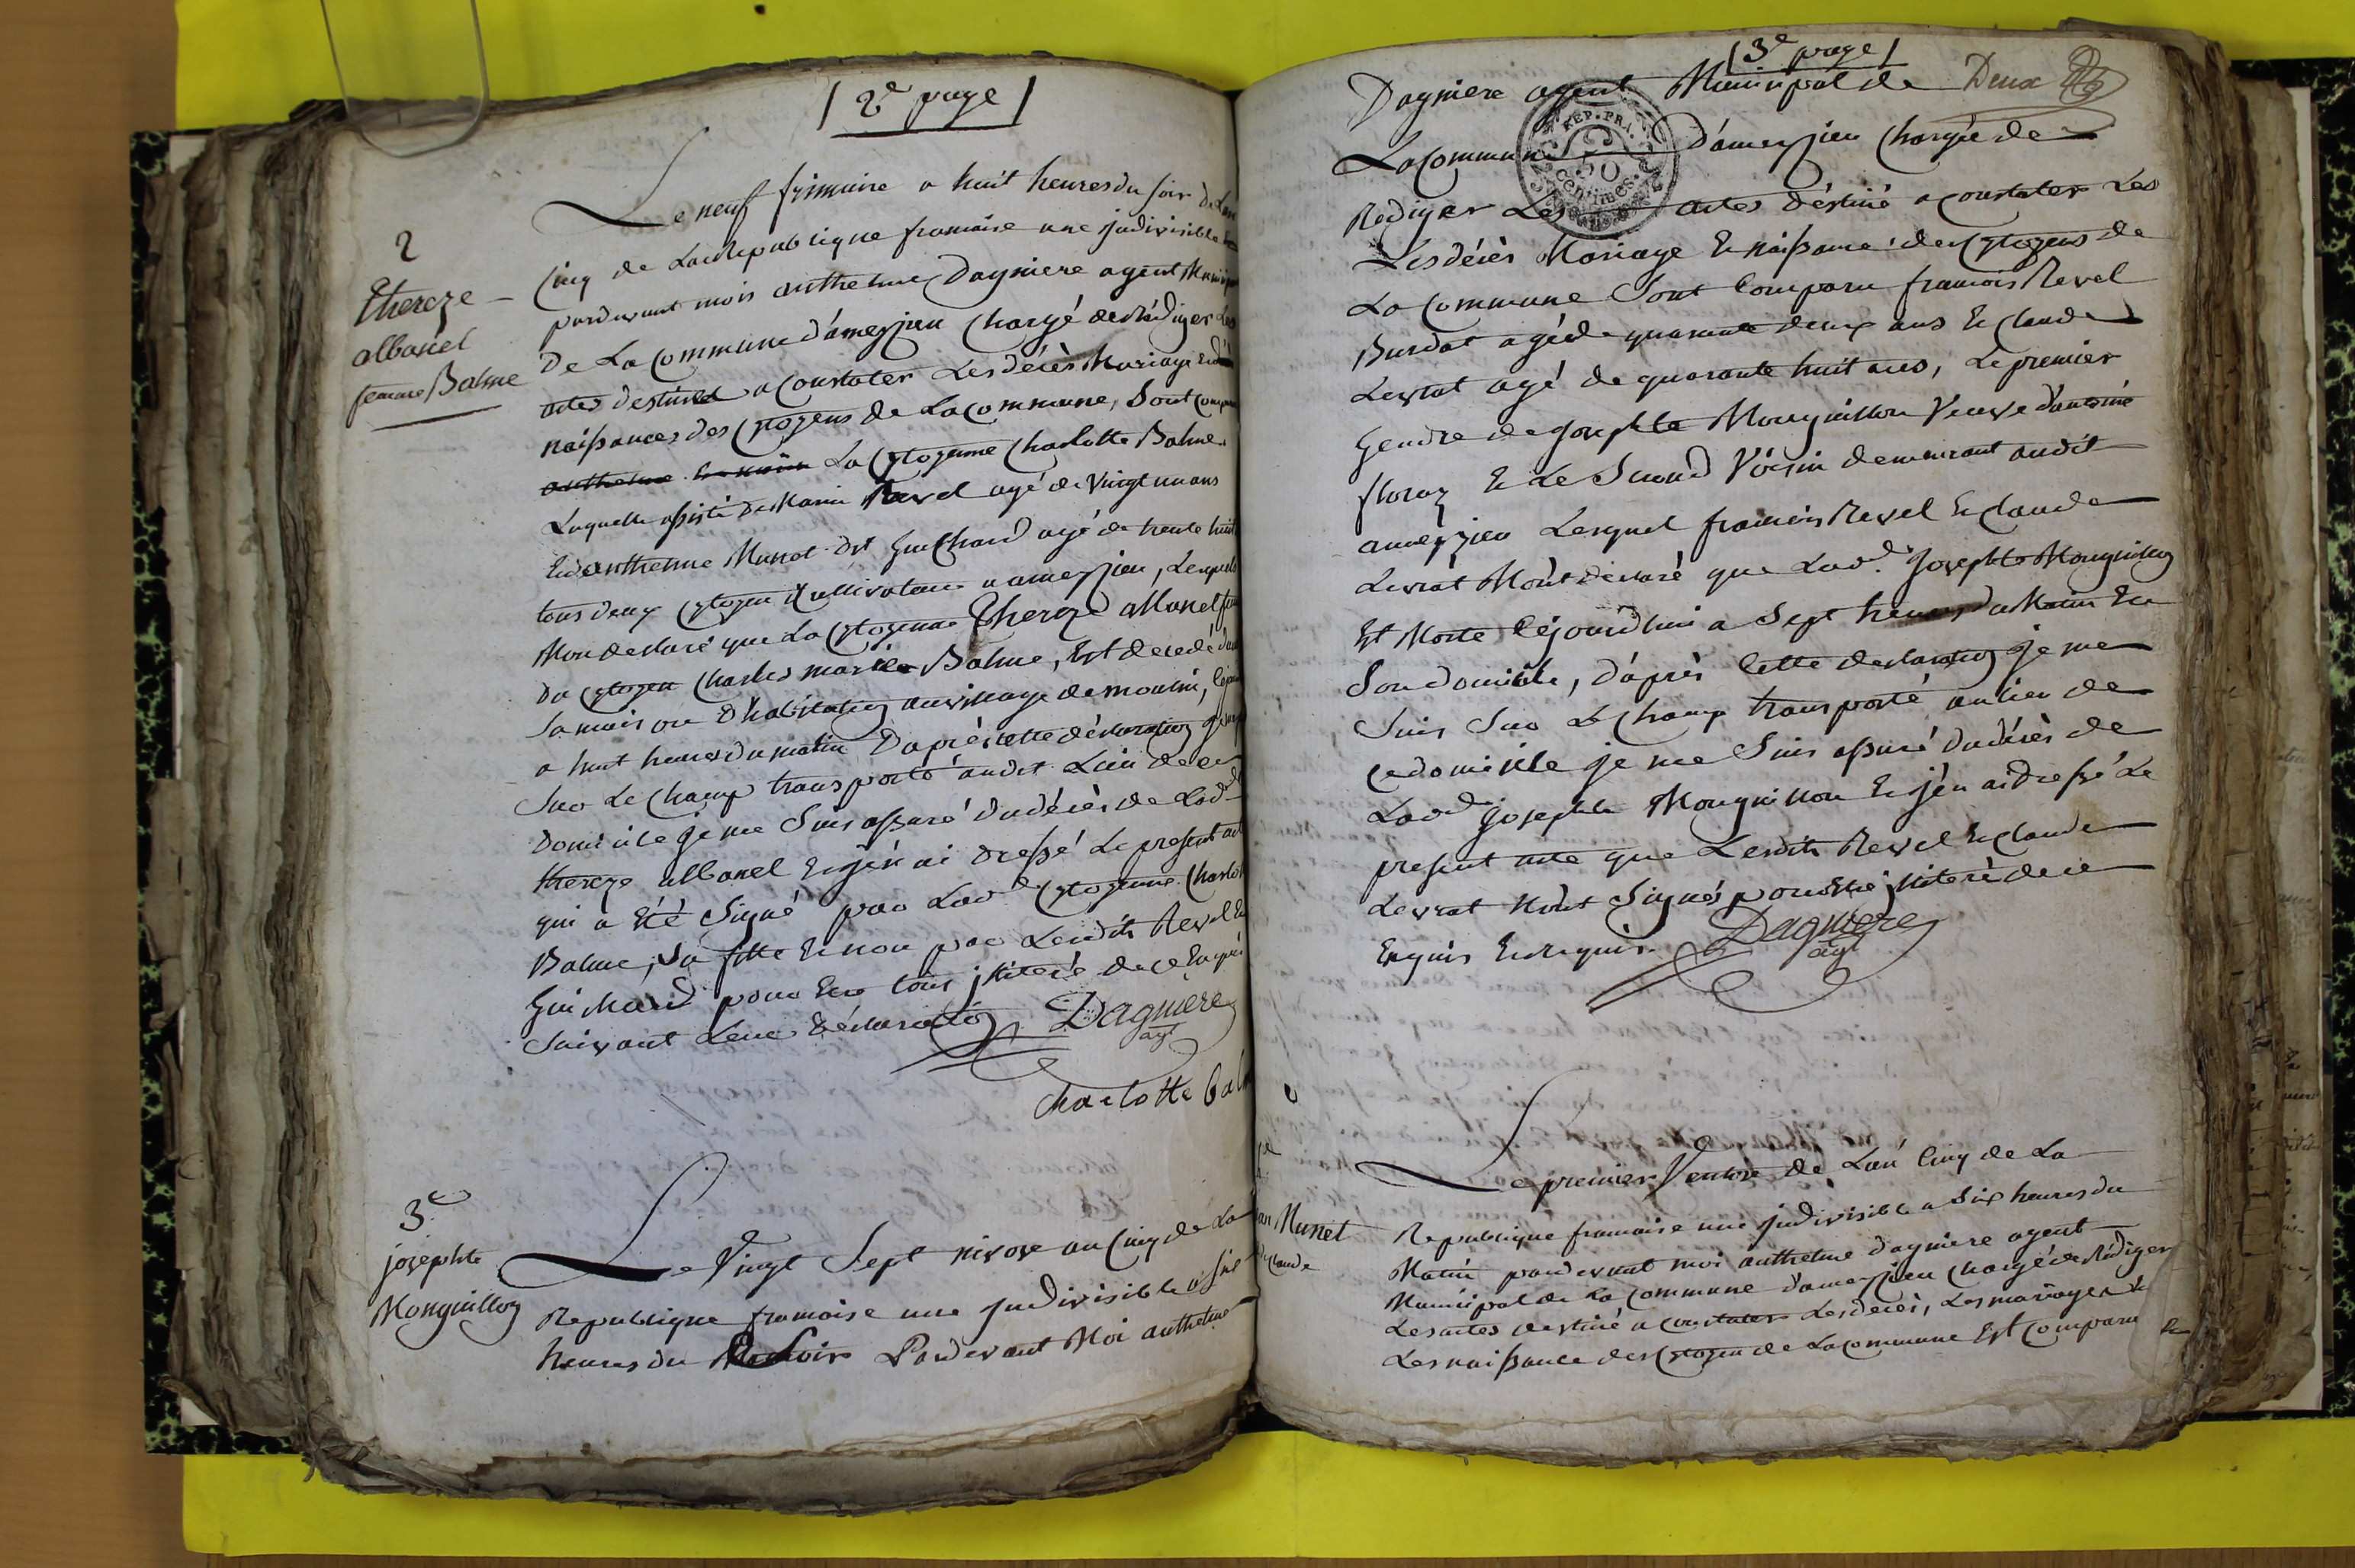 / 2e page /
2
Thereze
albanel
femme Balme
Le neuf frimaire a huit heures du soir de Lan
Cinq de La Republique francaise une jndivisible
pardevant mois anthelme Dagniere agent Munip
De La Commune d'ameyzieu Chargé de Rédiger Les
actes destinés a Constater Les décès Mariage Et
naissances des Cytoyens de La Commune, Sont Comp
anthelme La Cytoyenne Charlotte Balme
Laquelle assisté de Marin Revel agé de Vingt un ans
Et anthelme Munet dit Guichard agé de trente huit
tous deux Cytoyen Cultivateur a ameyzieu, Lesquels
Mon declaré que La Cytoyenne Thereze Albanel
du Cytoyen Charles marie Balme, Est decedé
Sa maison d'habitation au village de moulin,
a huit heures du matin D'après cette déclaration
Sur Le Champ transporté audit Lieu de ce
Domicile je me Suis assuré du décès de Lad.
thereze albanel Et j'en ai dressé Le present act
qui a Eté Signé par Lad. Cytoyenne Charlot
Balme, Sa fille Et non par Lesdits Revel Et
Guichard pour Etre tous jlliteré de ce Enquis
Suivant Leur Déclaration Dagniere
agt
Charlotte bal
3e
josephte
Monguillon
Le Vingt Sept nivose an Cinq de La
Republique francaise une jndivisible a six
heures du Soir Pardevant Moi anthelme
/ 3e page /
Deux
Dagniere agent Municipal de
REP. FRA.
50
centimes
La Commune d'ameyzieu Chargée de
Rédiger Les actes déstiné a Constater Les
Les décès Mariage Et naissance des Cytoyens de
La Commune Sont Comparu francois Revel
Burdat agé de quarante deux ans Et Claude
Levrat agé de quarante huit ans, Le premier
Gendre de Josephte Monguillon Veuve d'antoine
floraz Et Le Second Voisin demeurant audit
ameyzieu Lesquel francois Revel Et Claude
Levrat M'ont déclaré que Lad. Josephte Monguillon
Est Morte Cejourdhui a Sept heures du Matin En
Son domicile, d'après Cette declaration je me
Suis Sur Le Champ transporté au lieu de
Ce domicile je me Suis assuré du décès de
Lad. Josephte Monguillon Et j'en ai dressé Le
present acte que Lesdits Revel Et Claude
Levrat N'ont Signés pour Etre jlliteré de ce
Enquis Et Requis. Dagniere
agt
Munet
Claude
Le premier Ventose de L'an Cinq de La
Republique francaise une jndivisible a Six heures du
Matin pardevant moi anthelme dagniere agent
Municipal de La Commune d'ameyzieu Chargé de Rédiger
Les actes destiné a Constater Les décès, Les mariages Et
Les naissance des Cytoyen de La Commune Est Comparu